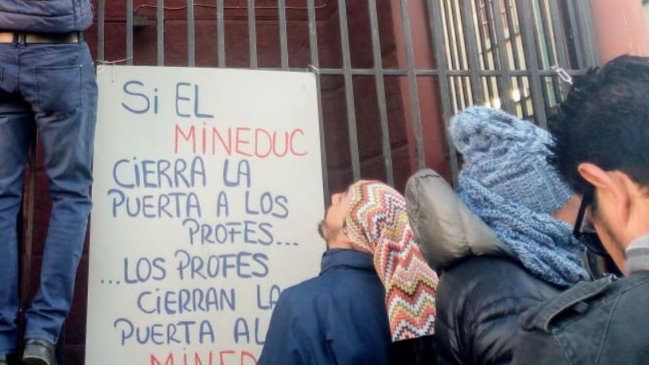 Si EL
MINEDUC
CIERRA LA
PUERTA A LOS
PROFES...
...LOS PROFES
CIERRAN LA
PUERTA AL
MINEDUC